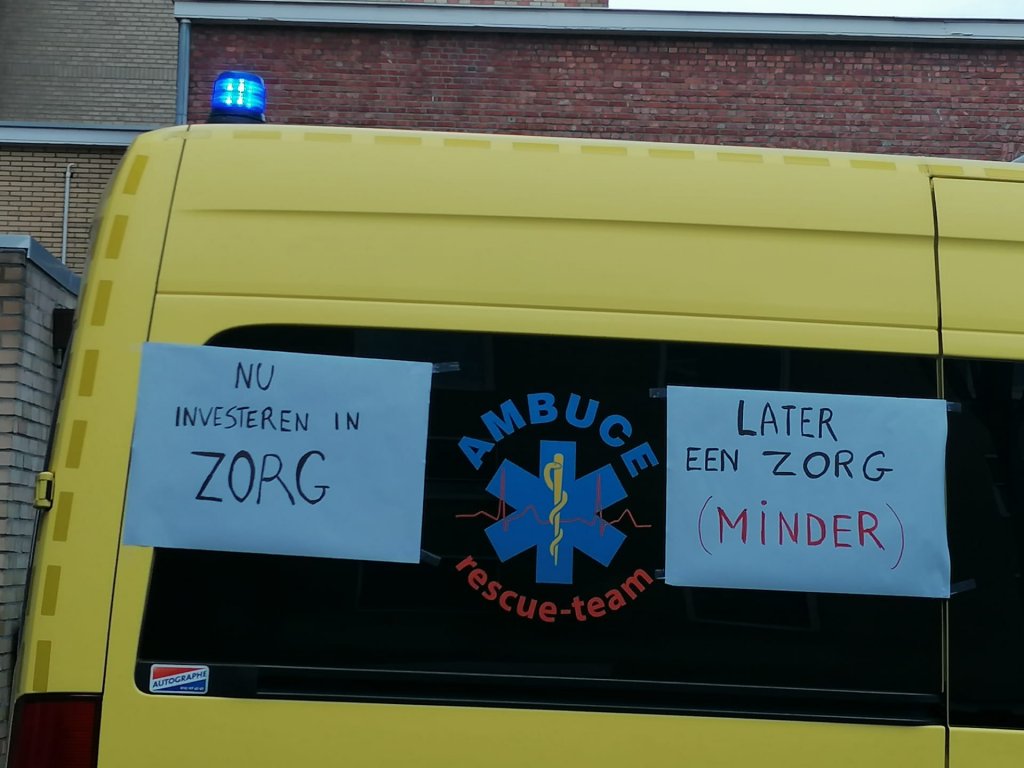 NU
INVESTEREN IN
ZORG
AMBUCE
rescue-team
LATER
EEN ZORG
(MINDER)
AUTOGRAPHE